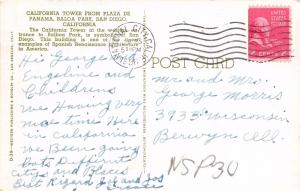 CALIFORNIA TOWER FROM PLAZA DE
PANAMA, BALBOA PARK, SAN DIEGO,
CALIFORNIA
The California Tower at the west
trance to Balboa Park, is symbolic of San
Diego. This building is one of the finest
examples of Spanish Renaissance
Hi George
Engeline and
Children
We Having very
nice time Here in
California
We Been going
Lots Different
cities and Places
Best Regard
POST CARD
Mr and Mrs
George Morris
3733 Wisconsin
Berwyn Ill.
NSP30